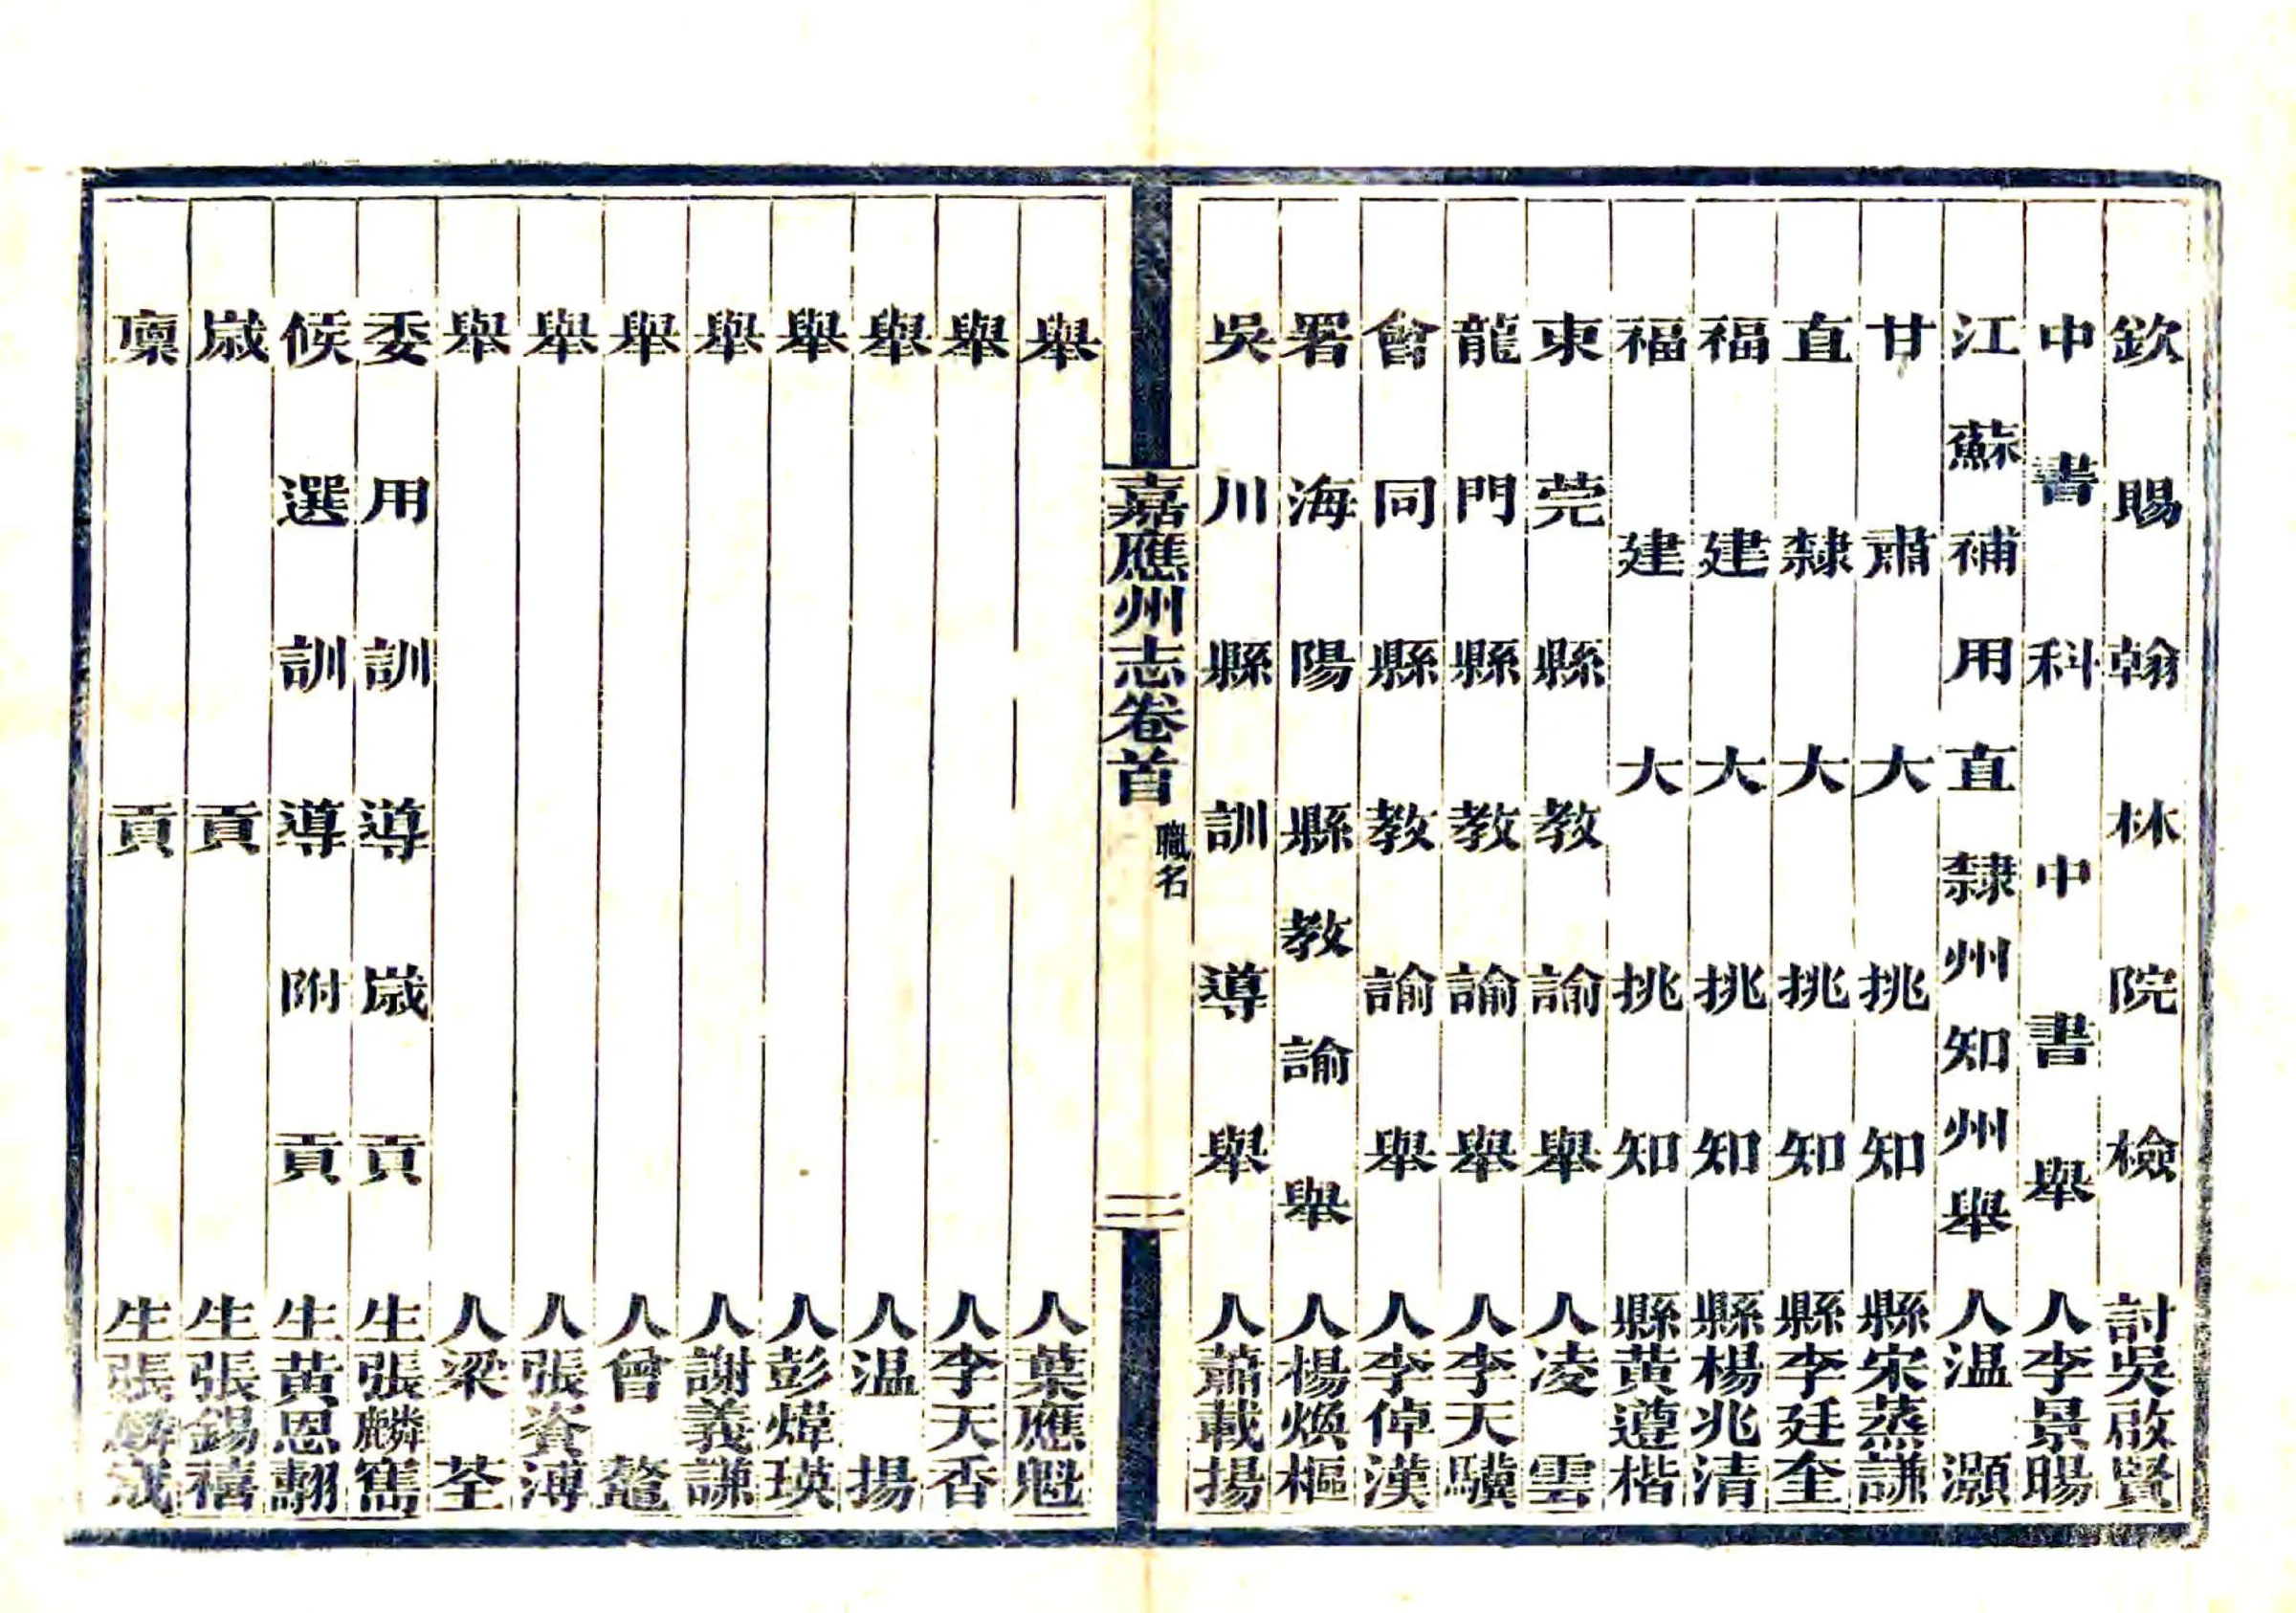 欽賜翰林院檢討吳啟賢
中書科中書舉人李景暘
江蘇補用直隸州知州舉人温灝
甘肅大挑知縣宋蒸謙
直隸大挑知縣李廷奎
福建大挑知縣楊兆清
福建大挑知縣黃遵楷
東莞縣教諭舉人凌雲
龍門縣教諭舉人李天驥
會同縣教諭舉人李倬漢
署海陽縣教諭舉人楊煥樞
吳川縣訓導舉人蕭載揚
嘉應州志卷首
職名
二
舉人葉應魁
舉人李天香
舉人温揚
舉人彭煒瑛
舉人謝義謙
舉人曾鼇
舉人張資溥
舉人梁荃
委用訓導歲貢生張麟寯
候選訓導附貢生黃恩翽
歲貢生張錫禧
廩貢生張麟